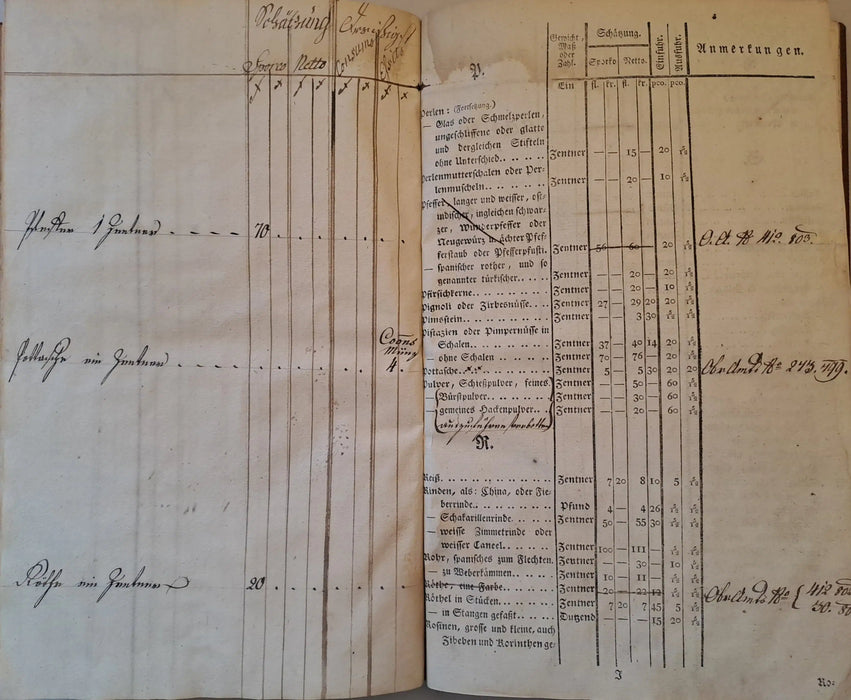 Schätzung
Sporco Netto
Pfeffer 1 Zentner . . . . . 70 . . . . . . .
Pottasche ein Zentner . . . . . . . . . . 4.
Röthe ein Zentner 20 . . . . . . .
P.
Gewicht, Maß oder Zahl.
Schätzung.
Sporko Netto.
Einfuhr. Ausfuhr.
Anmerkungen.
Ein fl. kr. fl. kr. pco. pco.
Perlen: (Fortsetzung.)
— Glas oder Schmelzperlen,
ungeschliffene oder glatte
und dergleichen Stifteln
ohne Unterschied..... Zentner — — 15 — 20 5/12
Perlenmutterschalen oder Per-
lenmuscheln...... Zentner — — 20 — 10 5/12
Pfeffer, langer und weisser, ost-
indischer, ingleichen schwar-
zer, Wunderpfeffer oder
Neugewürz, ächter Pfef-
ferstaub oder Pfefferpfusti. Zentner 56 — 60 — 20 5/12
— spanischer rother, und so
genannter türkischer.. Zentner — — 20 — 20 5/12
Pfirsichkerne.......... Zentner — — 20 — 10 5/12
Pignoli oder Zirbesnüsse... Zentner 27 — 29 20 20 5/12
Pimsstein............ Zentner — — 3 30 5/12 5/12
Pistazien oder Pimpernüsse in
Schalen.......... Zentner 37 — 40 14 20 5/12
— ohne Schalen ...... Zentner 70 — 76 — 20 5/12
Pottasche............ Zentner 5 — 5 30 20 20
Pulver, Schießpulver, feines Zentner — — 50 — 60 5/12
— Bürstpulver........ Zentner — — 30 — 60 5/12
— gemeines Hackenpulver.. Zentner — — 20 — 60 5/12
auszuführen verbotten
R.
Reiß.............. Zentner 7 20 8 10 5 5/12
Rinden, als: China, oder Fie-
berrinde.......... Pfund 4 — 4 26 5/12 5/12
— Schakarillenrinde .... Zentner 50 — 55 30 5/12 5/12
— weisse Zimmetrinde oder
weisser Caneel...... Zentner 100 — 111 — 5/12 5/12
Rohr, spanisches zum Flechten. Zentner — — 30 — 10 5/12
— zu Weberkämmen.... Zentner 10 — 11 — 5/12 5/12
Röthe, eine Farbe...... Zentner 20 — 22 12 5/12 5/12
Röthel in Stücken....... Zentner 7 20 7 45 5 5/12
— in Stangen gefaßt.... Dutzend — — — 15 20 5/12
Rosinen, grosse und kleine, auch
Zibeben und Korinthen ge-
J
Ro-